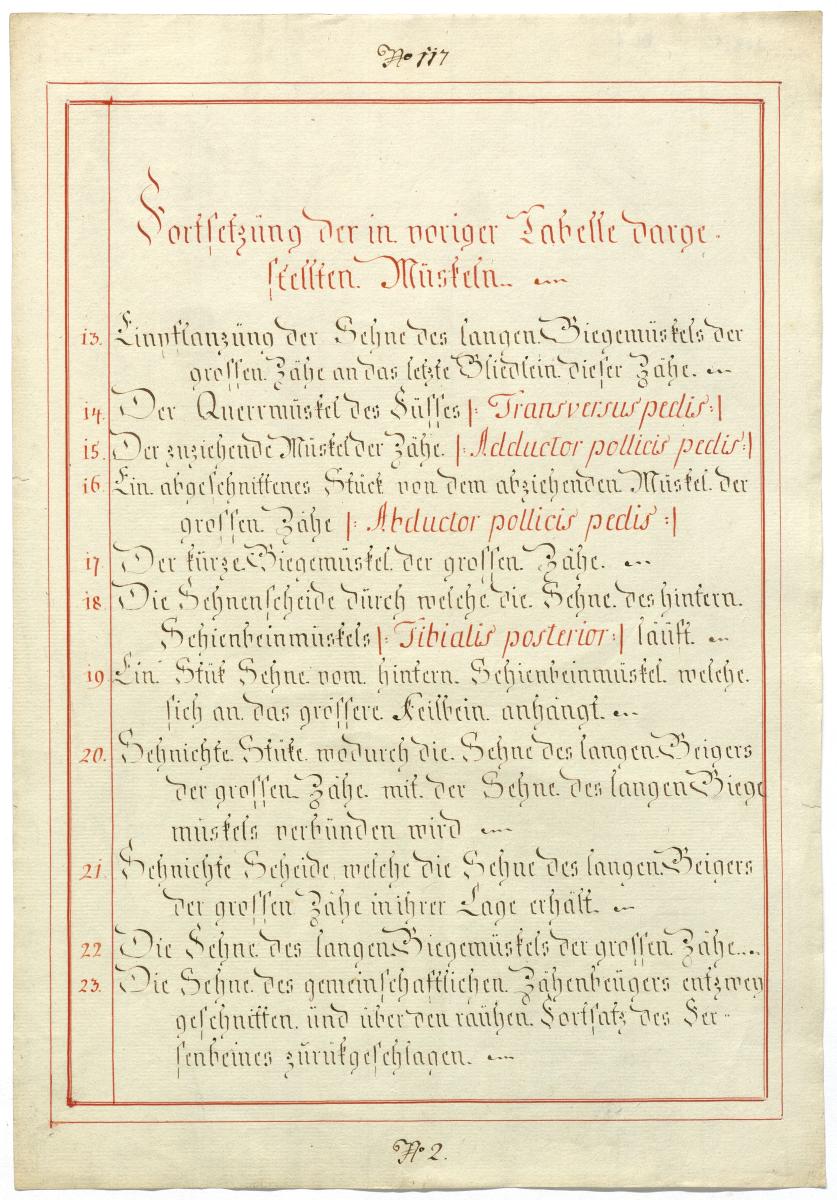 No 117
Fortsetzüng der in voriger Tabelle darge-
stellten Müskeln.
13. Einpflanzüng der Sehne des langen Biegemüskels der
grossen Zähe an das letzte Gliedlein dieser Zähe.
14. Der Querrmüskel des Füsses |: Transversus pedis :|
15. Der zuziehende Müskel der Zähe. |: Adductor pollicis pedis :|
16. Ein abgeschnittenes Stück von dem abziehenden Müskel der
grossen Zähe |: Abductor pollicis pedis :|
17. Der kürze Biegemüskel der grossen Zähe.
18. Die Sehnenscheide dürch welche die Sehne des hintern
Schienbeinmüskels |: Tibialis posterior :| läuft.
19. Ein Stük Sehne vom hintern Schienbeinmüskel welche
sich an das grössere Keilbein anhängt.
20. Sehnichte Stüke wodurch die Sehne des langen Beigers
der grossen Zähe mit der Sehne des langen Biege
müskels verbünden wird
21. Sehnichte Scheide welche die Sehne des langen Beigers
der grossen Zähe in ihrer Lage erhält.
22 Die Sehne des langen Biegemüskels der grossen Zähe...
23. Die Sehne des gemeinschaftlichen Zähenbeügers entzwey
geschnitten und über den raühen Fortsatz des Fer-
senbeines zürükgeschlagen.
No 2.